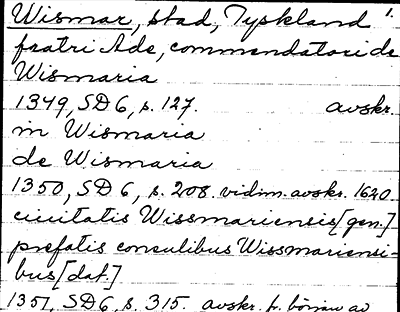 Wismar, stad, Tyskland 1.
fratri Ade, commendatori de
Wismaria
1349, SD 6, s. 127. avskr.
in Wismaria
de Wismaria
1350, SD 6, s. 208. vidim. avskr. 1620
ciuitatis Wissmariensis [gen.]
prefatis consulibus Wissmariensi-
bus [dat.]
1351, SD 6, s. 315. avskr. fr. början av